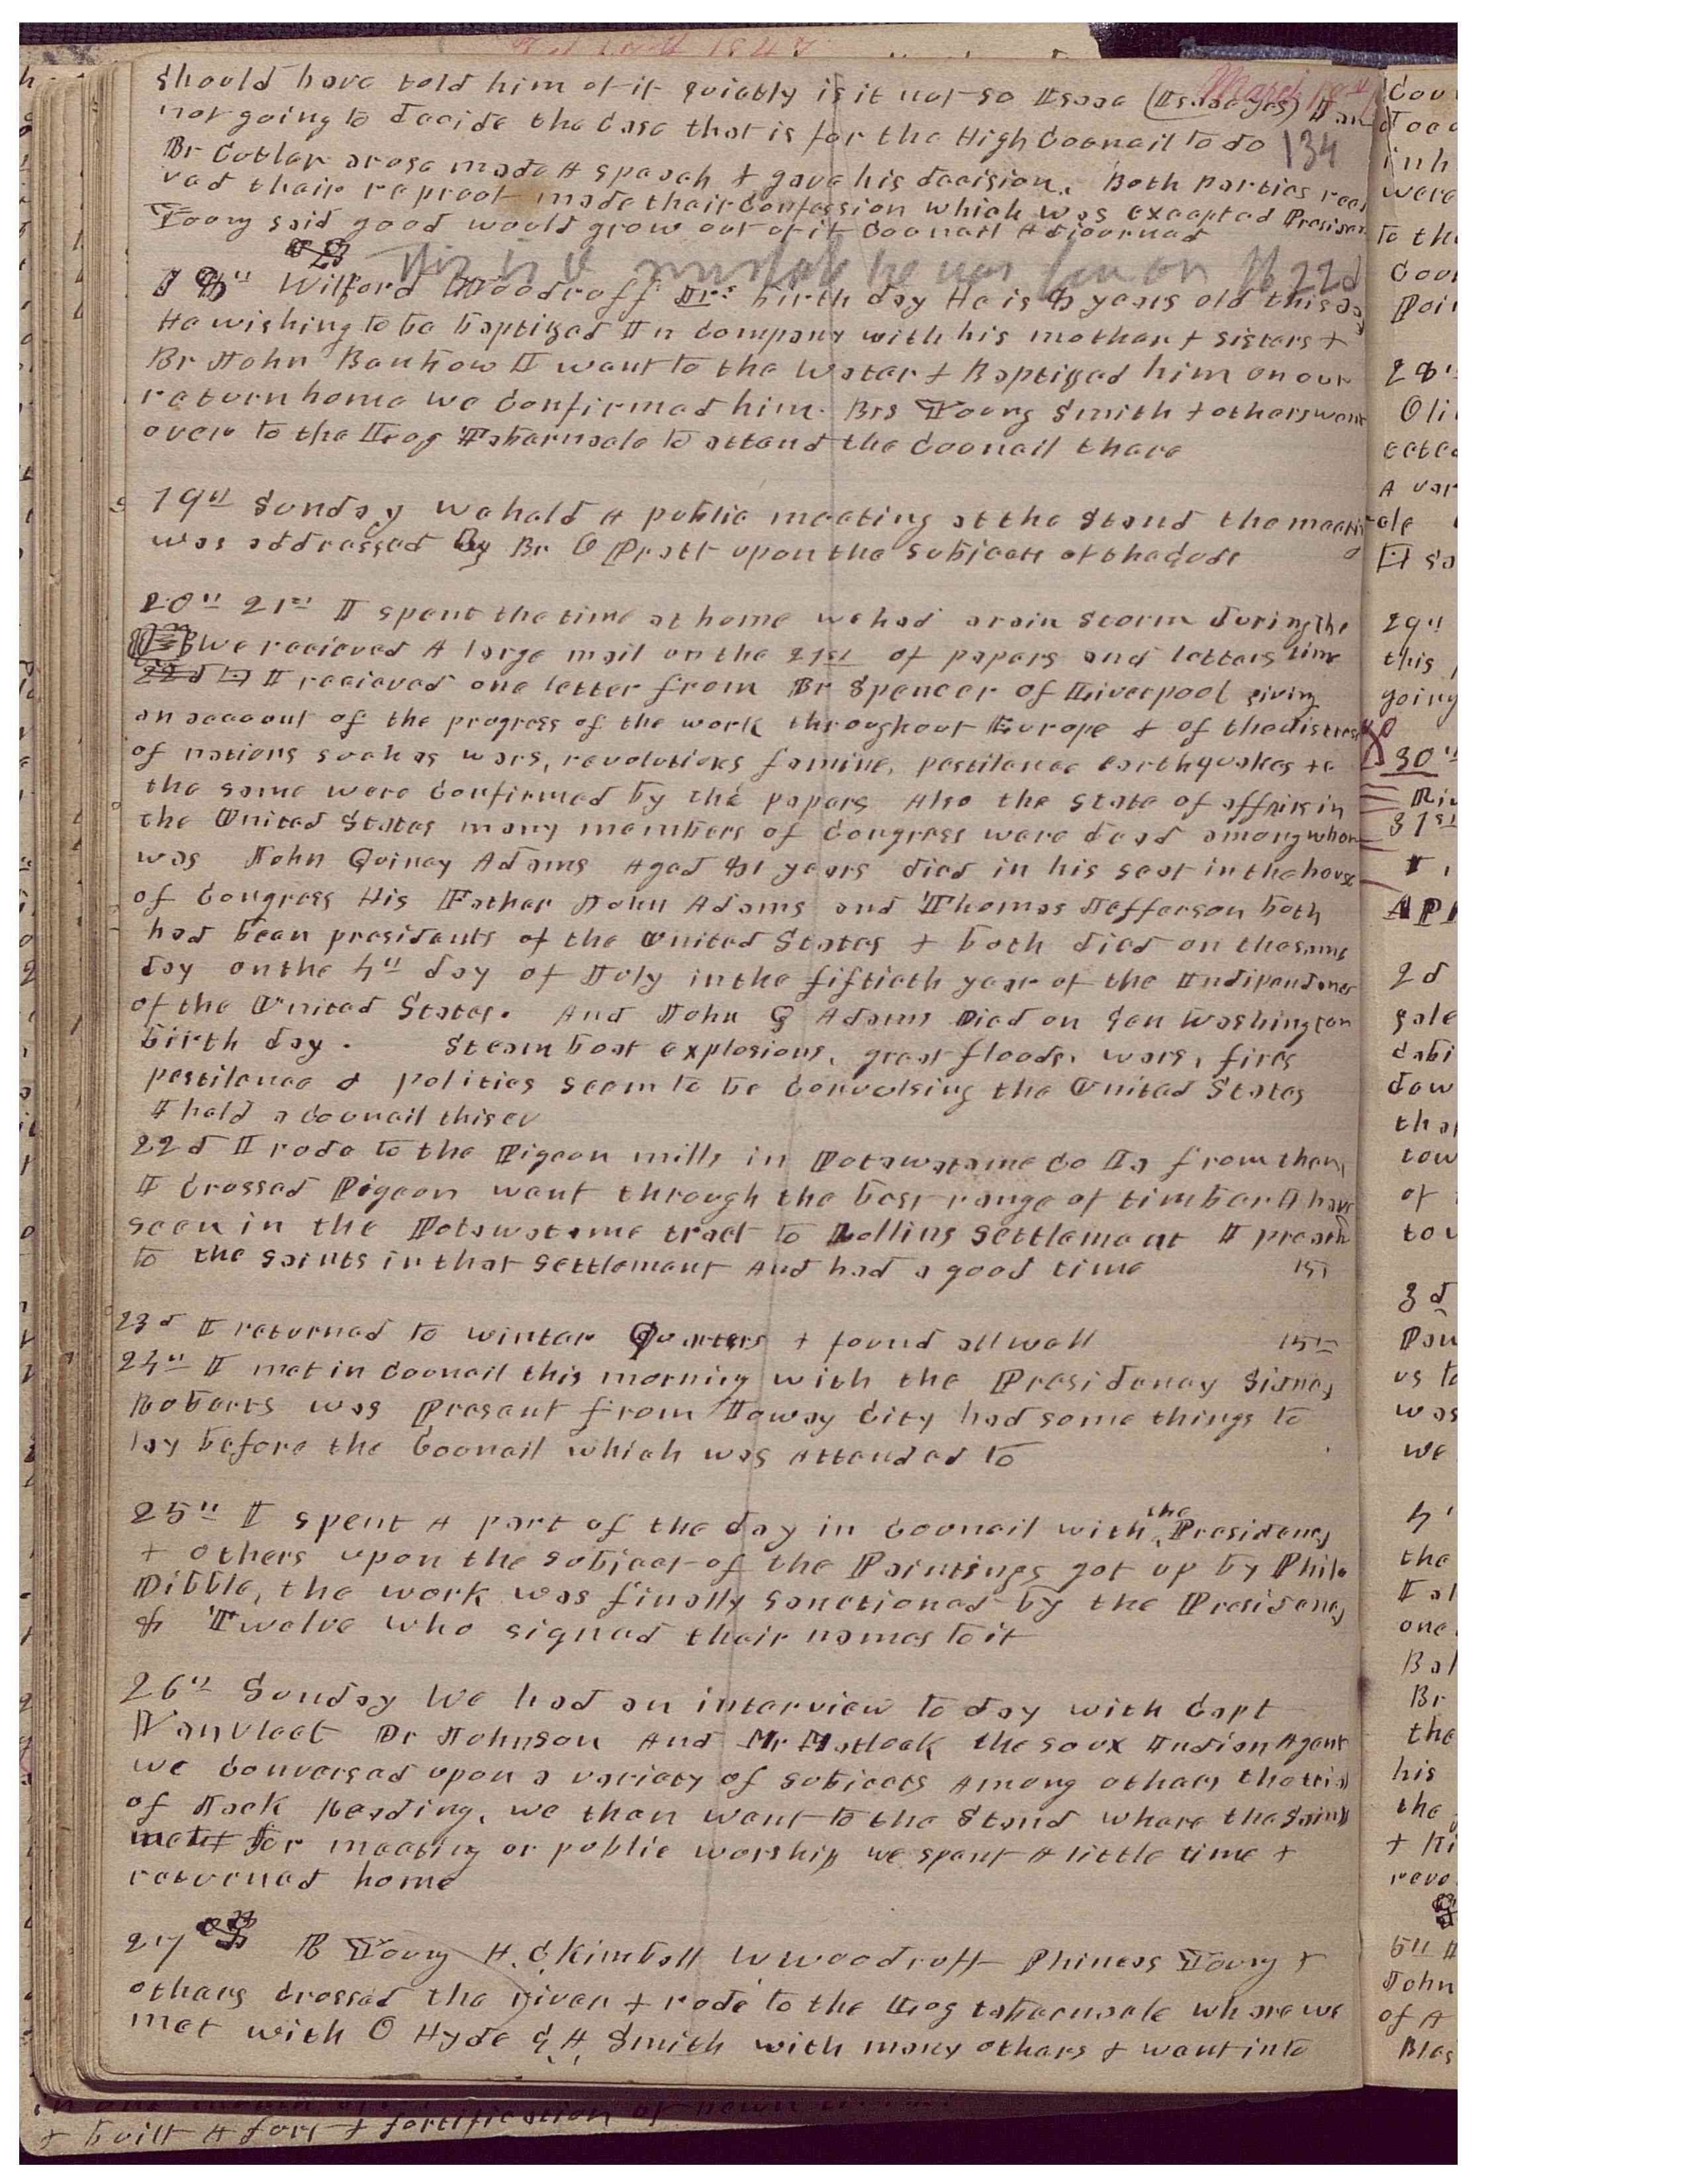 should have told him of it quietly is it not so Isaac (Isaac yes) I am
March 18th
134
not going to decide the case that is for the High Councail to do
Br Cutler arose made A speach & gave his decision. Both Parties recei
ved thair reproof made thair Confession which was excepted Presiden
Young said good would grow out of it Councail Adjourned
This is a mistake he was born on the 22d
18th Wilford Woodruff Jrs. birth day He is 8 years old this day
He wishing to be baptized In Company with his mother & sisters &
Br John Banbow I went to the water & Baptized him on our
return home we Confirmed him. Brs Young Smith & others went
over to the Log Tabernacle to attend the Councail there
19th Sunday we held A public meeting at the Stand the meeting
was addressed By Br O Pratt upon the subject of the Gods
20th 21st I spent the time at home we had a rain storm during the
time
We recieved A large mail on the 21st of papers and letters
22d I recieved one letter from Br Spencer of Liverpool giving
an account of the progress of the work throughout Europe & of the distress
of nations such as wars, revolutions famine, pestilence earthquakes &c
the same were Confirmed by the papers Also the state of affairs in
the United States many members of Congress were dead among whom
was John Quincy Adams Aged 81 years died in his seat in the house
of Congress His Father John Adams and Thomas Jefferson both
had been presidents of the United States & both died on the same
day on the 4th day of July in the fiftieth year of the Indipendence
of the United States. And John Q Adams Died on Gen Washington
birth day. Steam boat explosions, great floods, wars, fires
pestilence & politics seem to be Convulsing the United States
I held a Councail this ev
22d I rode to the Pigeon mills in Potawatame Co Ia from thence
I Crossed Pigeon went through the best range of timber I have
seen in the Potawatame tract to Rollins Settlement I preach
to the saints in that Settlement And had a good time 15
23d I returned to Winter Quarters & found all well 15
24th I met in Councail this morning with the Presidency Sidney
Roberts was Present from Iaway City had some things to
lay before the Councail which was Attended to
25th I spent A part of the day in Councail with the Presidency
& others upon the subject of the Paintings got up by Philo
Dibble, the work was finally sanctioned by the Presidency
& Twelve who signed their names to it
26th Sunday We had an interview to day with Capt
Vanvleet Dr Johnson And Mr Matlock the soux Indian Agent
we Conversed upon a variety of subjects Among others the trial
of Jack Reading, we then went to the Stand where the Saints
met for meeting or public worship we spent A little time &
returned home
27 B Young H. C. Kimball W Woodruff Phineas Young &
others Crossed the river & rode to the Log tabernacle where we
met with O Hyde G. A. Smith with many others & went into
& built A fort & fortification of